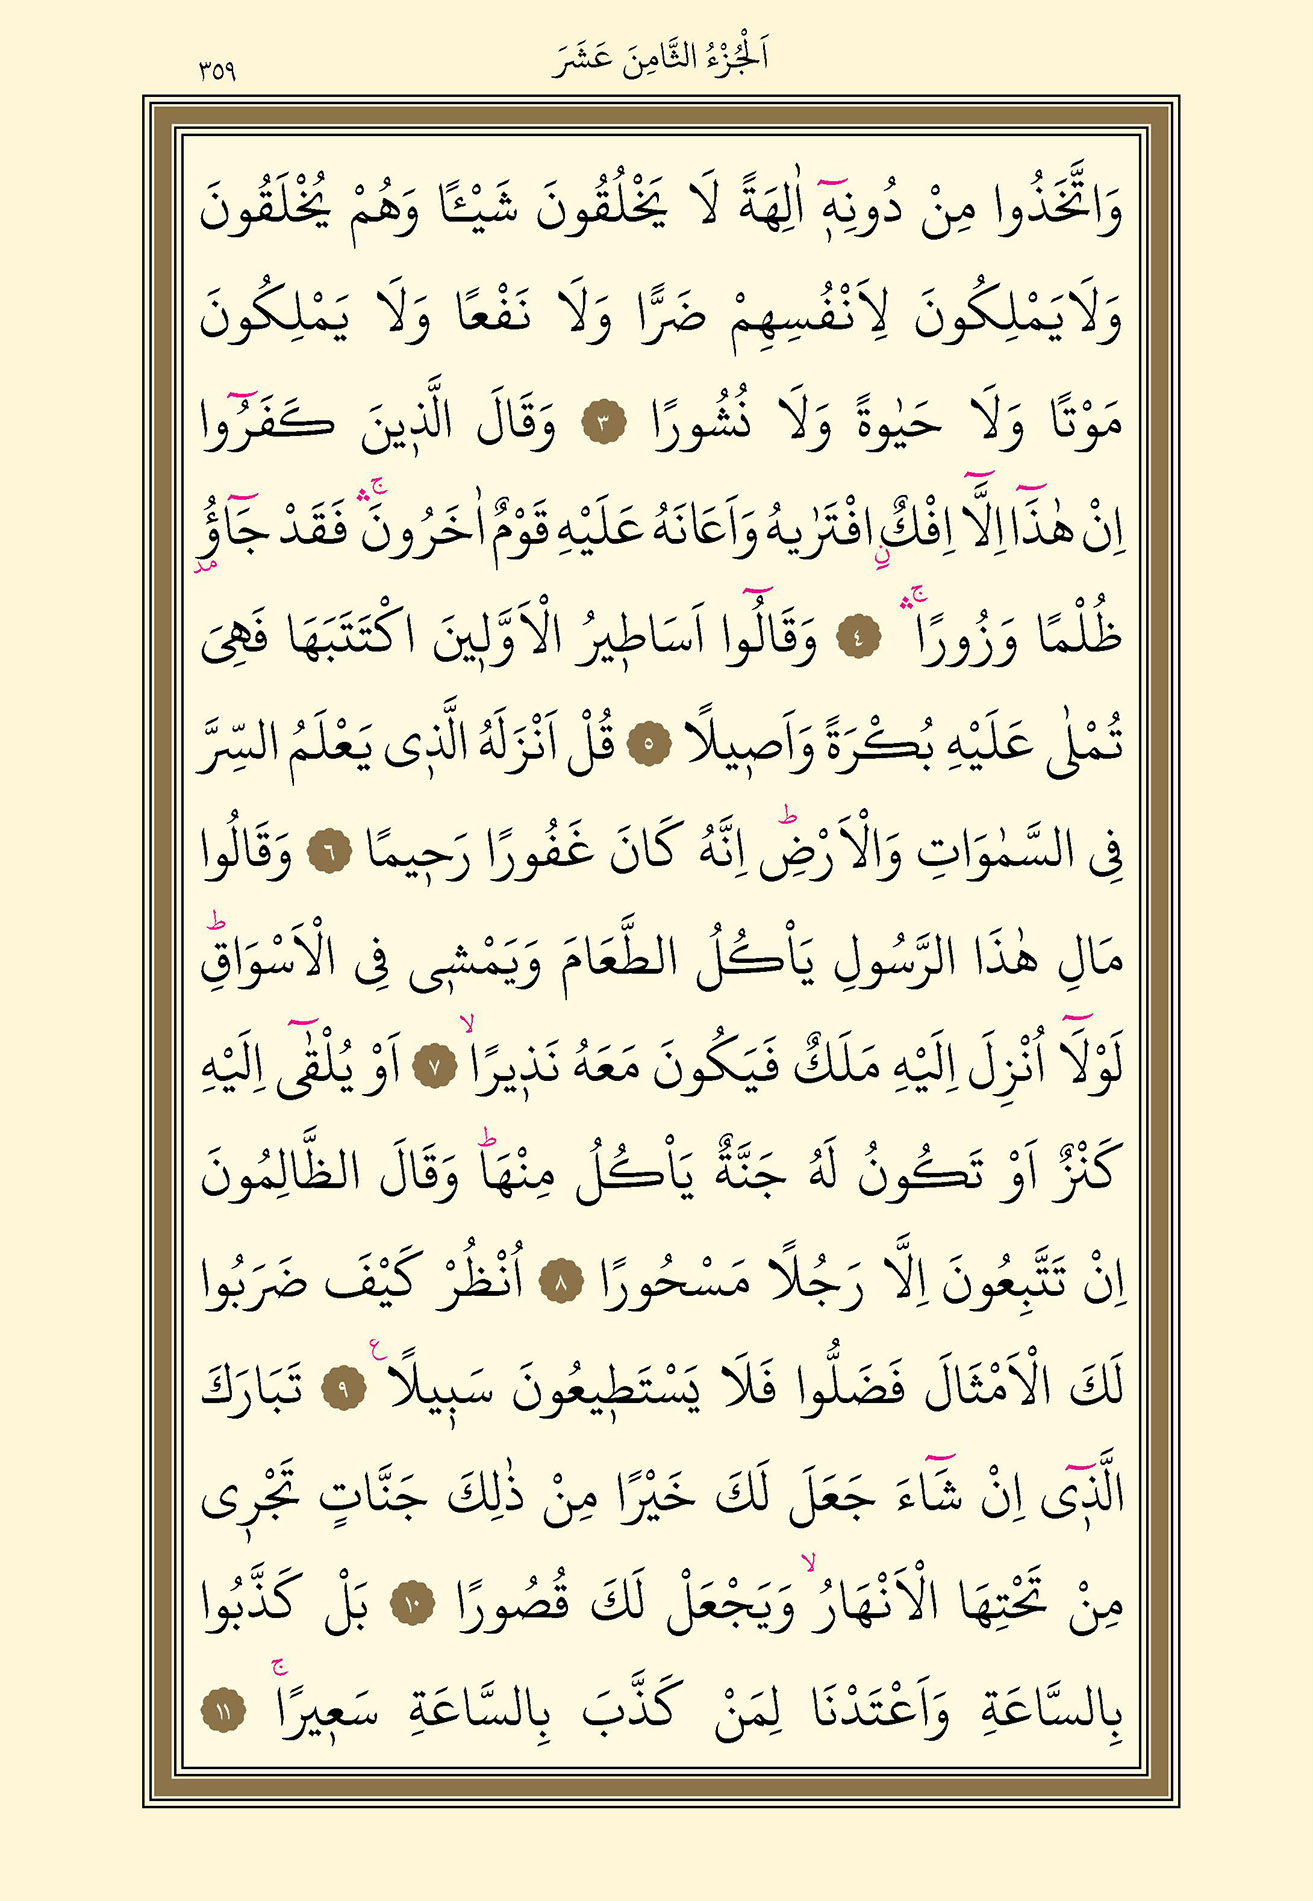 اَلْجُزْءُ الثَّامِنَ عَشَرَ
٣٥٩
وَاتَّخَذُوا مِنْ دُونِه۪ٓ اٰلِهَةً لَا يَخْلُقُونَ شَيْـًٔا وَهُمْ يُخْلَقُونَ
وَلَا يَمْلِكُونَ لِاَنْفُسِهِمْ ضَرًّا وَلَا نَفْعًا وَلَا يَمْلِكُونَ
مَوْتًا وَلَا حَيٰوةً وَلَا نُشُورًا ﴿٣﴾ وَقَالَ الَّذ۪ينَ كَفَرُٓوا
اِنْ هٰذَٓا اِلَّٓا اِفْكٌۨ افْتَرٰيهُ وَاَعَانَهُ عَلَيْهِ قَوْمٌ اٰخَرُونَۚۛ فَقَدْ جَٓاؤُ۫
ظُلْمًا وَزُورًاۚۛ ﴿٤﴾ وَقَالُٓوا اَسَاط۪يرُ الْاَوَّل۪ينَ اكْتَتَبَهَا فَهِيَ
تُمْلٰى عَلَيْهِ بُكْرَةً وَاَص۪يلًا ﴿٥﴾ قُلْ اَنْزَلَهُ الَّذ۪ي يَعْلَمُ السِّرَّ
فِي السَّمٰوَاتِ وَالْاَرْضِۜ اِنَّهُ كَانَ غَفُورًا رَح۪يمًا ﴿٦﴾ وَقَالُوا
مَالِ هٰذَا الرَّسُولِ يَاْكُلُ الطَّعَامَ وَيَمْش۪ي فِي الْاَسْوَاقِۜ
لَوْلَٓا اُنْزِلَ اِلَيْهِ مَلَكٌ فَيَكُونَ مَعَهُ نَذ۪يرًاۙ ﴿٧﴾ اَوْ يُلْقٰٓى اِلَيْهِ
كَنْزٌ اَوْ تَكُونُ لَهُ جَنَّةٌ يَاْكُلُ مِنْهَاۜ وَقَالَ الظَّالِمُونَ
اِنْ تَتَّبِعُونَ اِلَّا رَجُلًا مَسْحُورًا ﴿٨﴾ اُنْظُرْ كَيْفَ ضَرَبُوا
لَكَ الْاَمْثَالَ فَضَلُّوا فَلَا يَسْتَط۪يعُونَ سَب۪يلًا ع ﴿٩﴾ تَبَارَكَ
الَّذ۪ٓي اِنْ شَٓاءَ جَعَلَ لَكَ خَيْرًا مِنْ ذٰلِكَ جَنَّاتٍ تَجْر۪ي
مِنْ تَحْتِهَا الْاَنْهَارُۙ وَيَجْعَلْ لَكَ قُصُورًا ﴿١٠﴾ بَلْ كَذَّبُوا
بِالسَّاعَةِ وَاَعْتَدْنَا لِمَنْ كَذَّبَ بِالسَّاعَةِ سَع۪يرًاۚ ﴿١١﴾